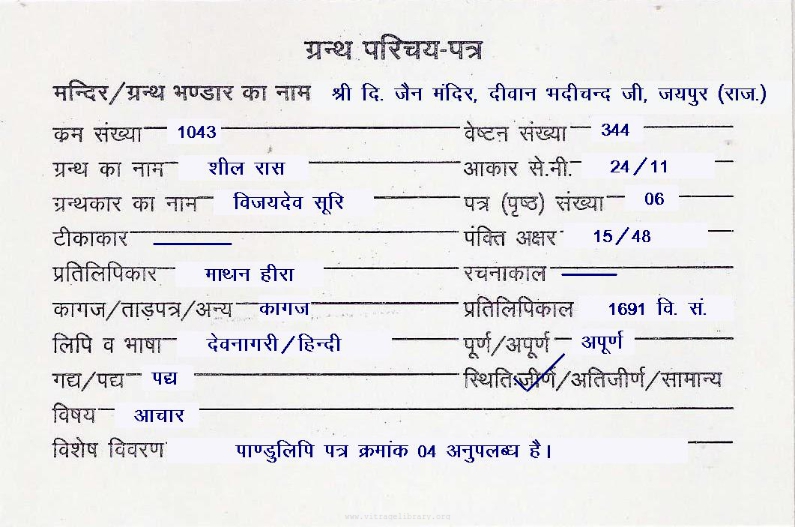 ग्रन्थ परिचय-पत्र
मन्दिर/ग्रन्थ भण्डार का नाम श्री दि. जैन मंदिर, दीवान भदीचन्द जी, जयपुर (राज.)
कम संख्या 1043 वेष्टन संख्या 344
ग्रन्थ का नाम शील रास आकार से.नी. 24/11
ग्रन्थकार का नाम विजयदेव सूरि पत्र (पृष्ठ) संख्या 06
टीकाकार पंक्ति अक्षर 15/48
प्रतिलिपिकार माथन हीरा रचनाकाल
कागज/ताड़पत्र/अन्य कागज प्रतिलिपिकाल 1691 वि. सं.
लिपि व भाषा देवनागरी/हिन्दी पूर्ण/अपूर्ण अपूर्ण
गद्य/पद्य पद्य स्थिति जीर्ण/अतिजीर्ण/सामान्य
विषय आचार
विशेष विवरण पाण्डुलिपि पत्र क्रमांक 04 अनुपलब्ध है।